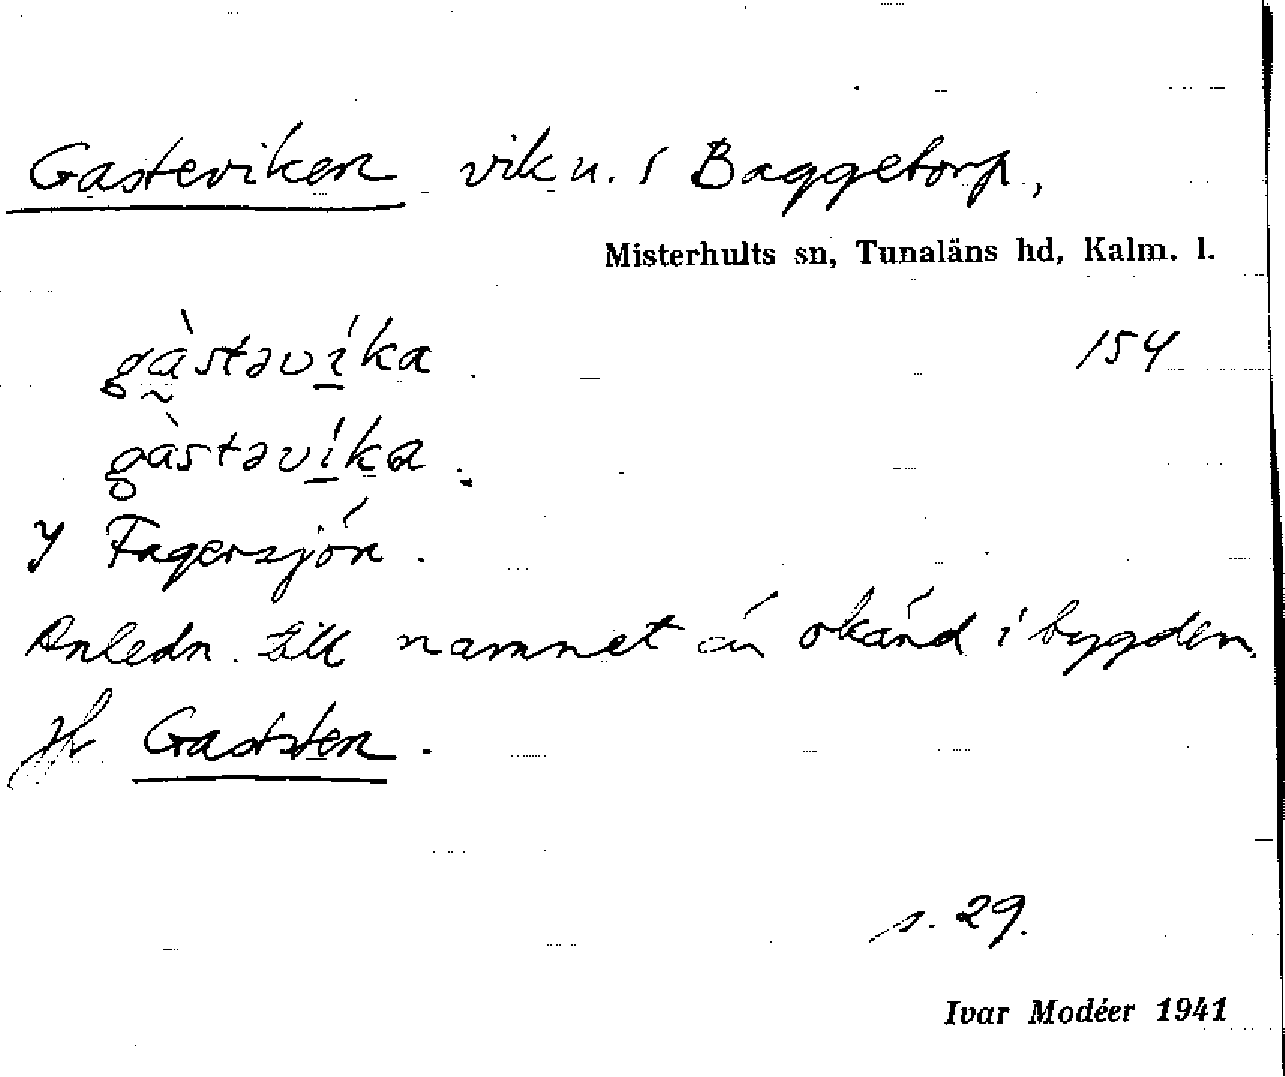 Gasteviken vik u. f Baggetorp,
Misterhults sn, Tunaläns hd, Kalm. l.
gàstəvíka 154
gàstəvíka.
I Fagersjön.
Anledn. till namnet är okänd i bygden.
Jfr Gaststen.
s. 29.
Ivar Modéer 1941